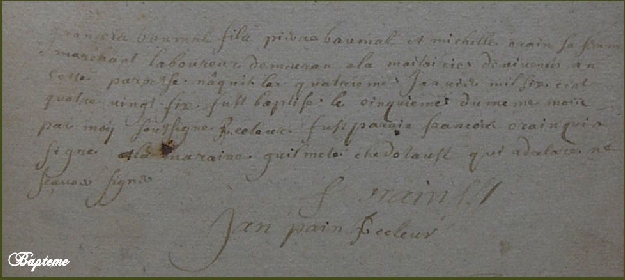 françois baumal fils pierre baumal et michelle orain sa fem
marchant laboureur demeuran a la maitairie de
cette paroesse nâquit le quatrieme Janvier mil six cent
quatre vingt six fust baptisé le cinquieme du meme mois
par moy soussigne Recteur fust parain francois orain qui a
signé et la maraine guilmete chedotault qui a declaré ne
scavoir signer
f orain
Jan pain Recteur
Bapteme